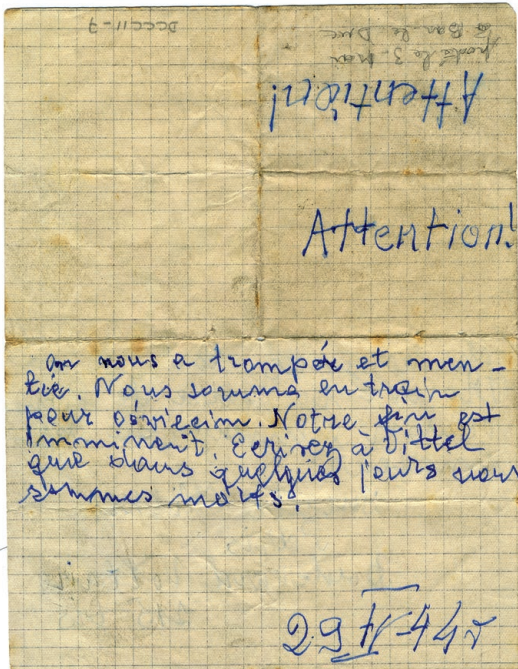 DCCCII-7
posté le 3 Mai
à Bar le Duc
Attention!
Attention!
on nous a trompés et men-
tié. Nous somme en train
pour oświecim. Notre fin est
imminent. Ecrivez à Vittel
que dans quelques jours nous
sommes morts!
29 IV-44 r